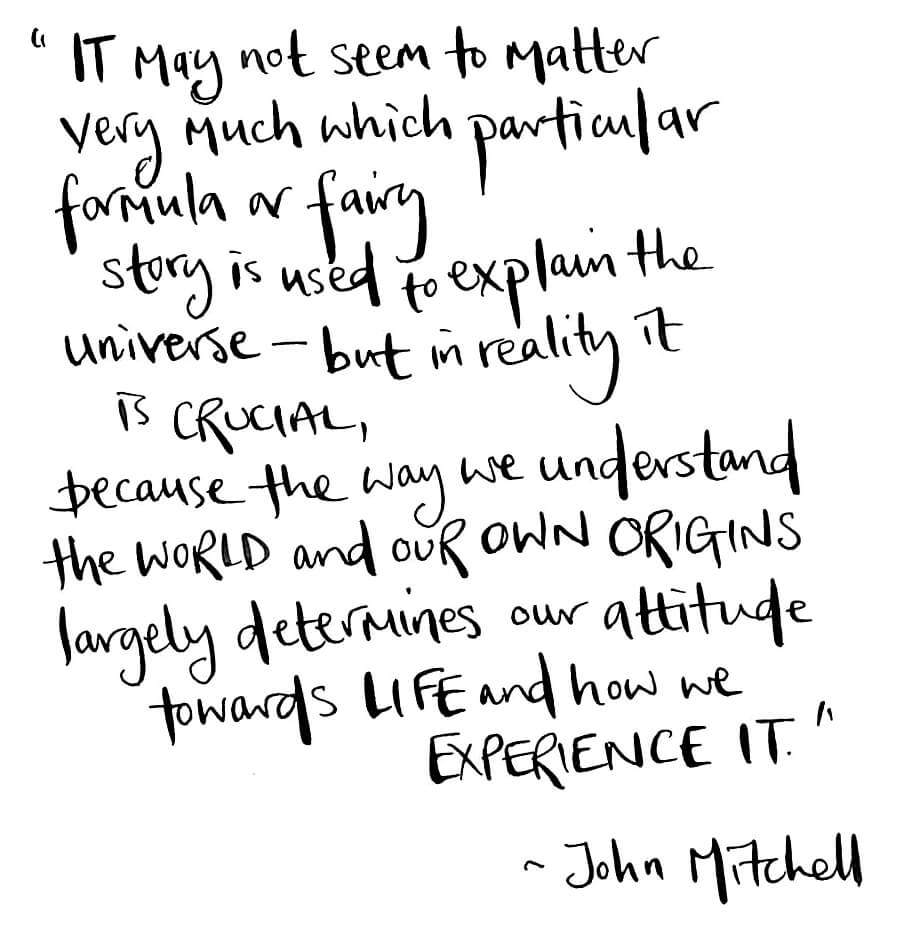 “ IT May not seem to Matter
very Much which particular
formula or fairy
story is used to explain the
universe – but in reality it
is CRUCIAL,
because the way we understand
the WORLD and OUR OWN ORIGINS
largely determines our attitude
towards LIFE and how we
EXPERIENCE IT. ”
~ John Mitchell